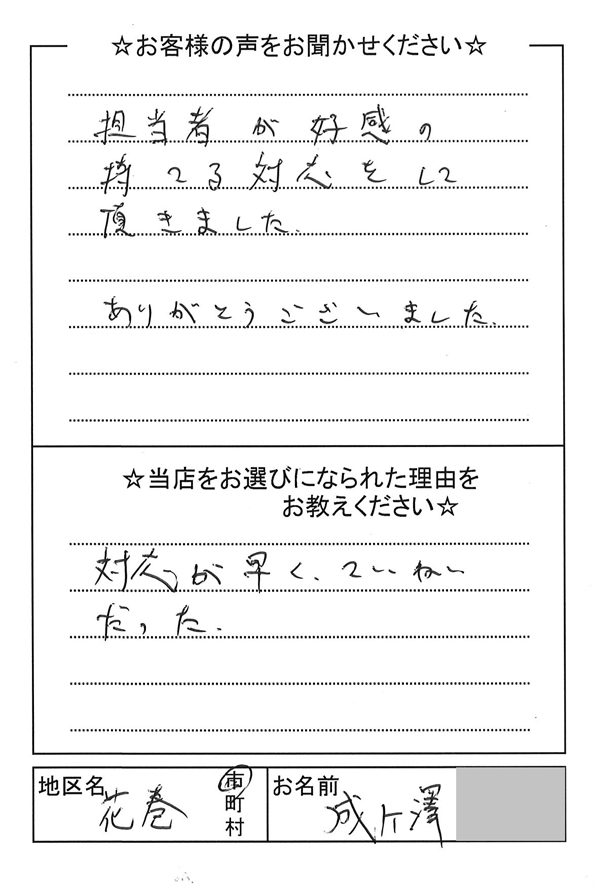 ☆お客様の声をお聞かせください☆
担当者が好感の
持てる対応をして
頂きました.
ありがとうございました.
☆当店をお選びになられた理由を
お教えください☆
対応が早く、ていねい
だった.
地区名
花巻
市
町
村
お名前
成ケ澤